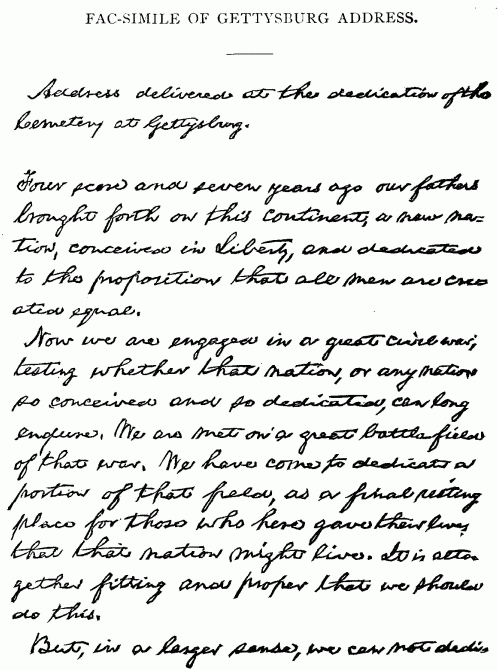 FAC-SIMILE OF GETTYSBURG ADDRESS.
Address delivered at the dedication of the
Cemetery at Gettysburg.
Four score and seven years ago our fathers
brought forth on this continent, a new na=
tion, conceived in Liberty, and dedicated
to the proposition that all men are cre=
ated equal.
Now we are engaged in a great civil war,
testing whether that nation, or any nation
so conceived and so dedicated, can long
endure. We are met on a great battle field
of that war. We have come to dedicate a
portion of that field, as a final resting
place for those who here gave their lives
that that nation might live. It is alto-
gether fitting and proper that we should
do this.
But, in a larger sense, we can not dedi=